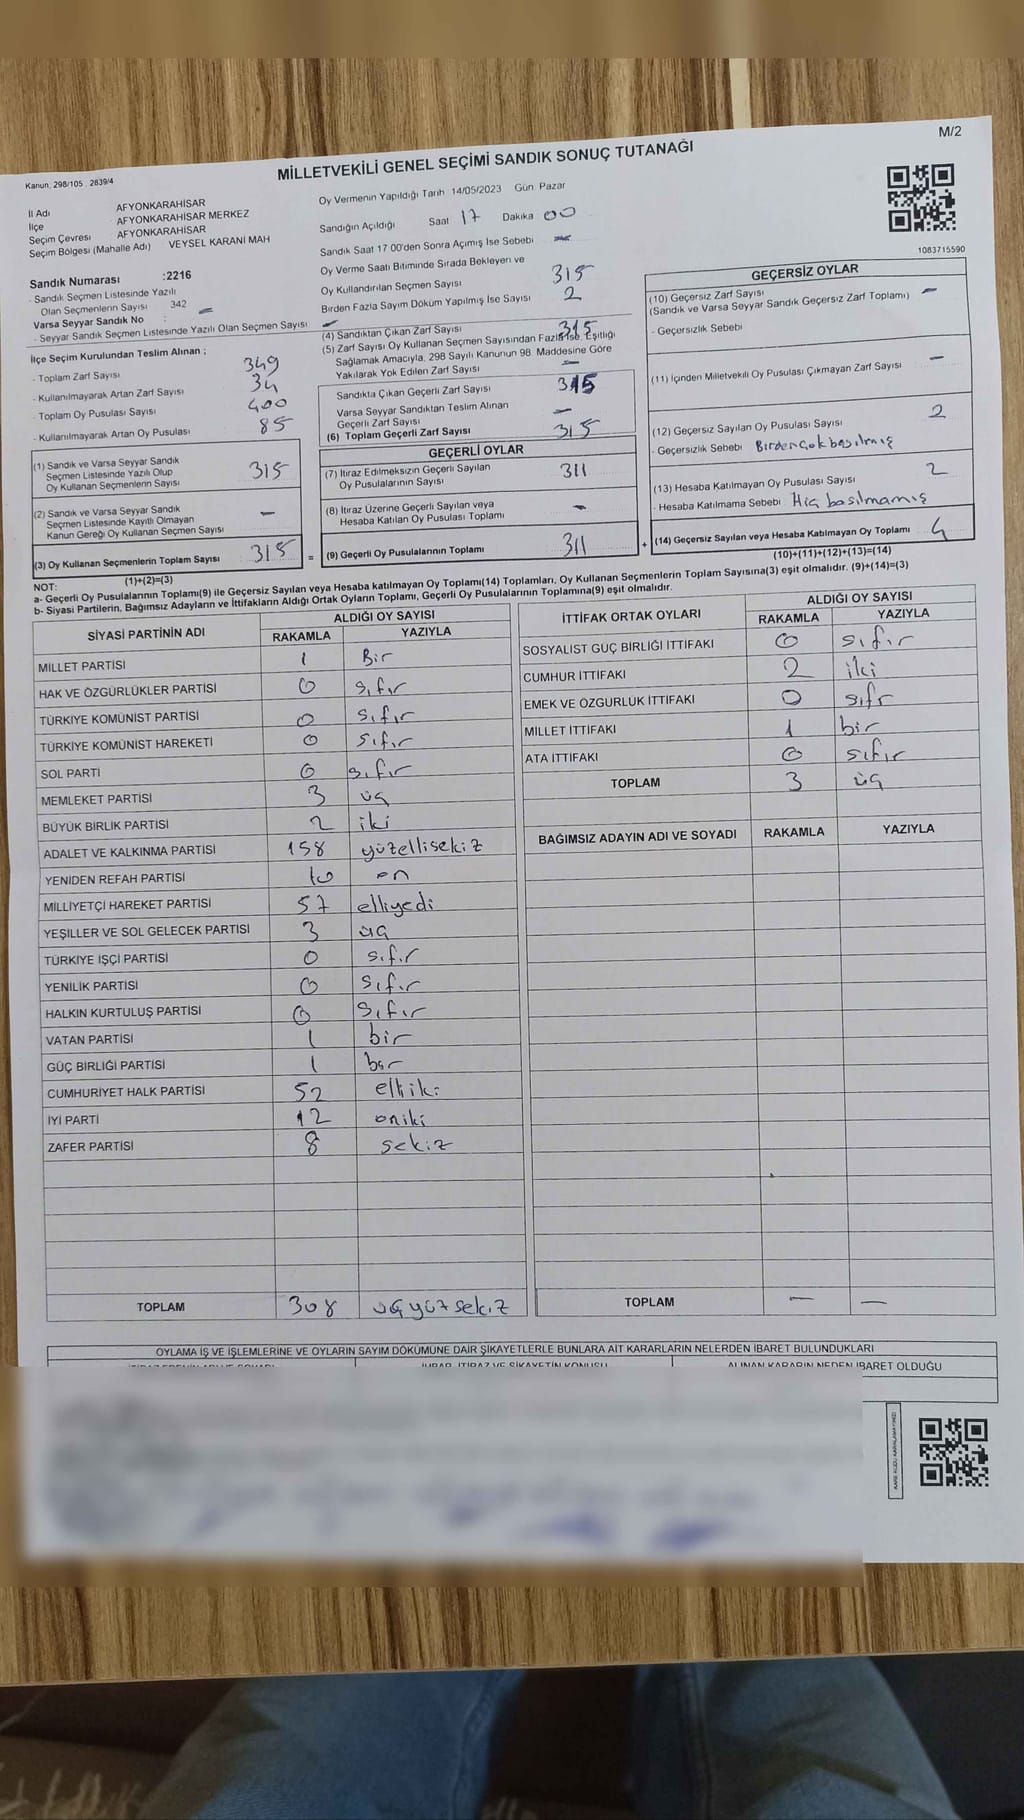 M/2
MİLLETVEKİLİ GENEL SEÇİMİ SANDIK SONUÇ TUTANAĞI
Kanun: 298/105 , 2839/4
İl Adı AFYONKARAHİSAR
İlçe AFYONKARAHİSAR MERKEZ
Seçim Çevresi AFYONKARAHİSAR
Seçim Bölgesi (Mahalle Adı) VEYSEL KARANİ MAH
Sandık Numarası :2216
- Sandık Seçmen Listesinde Yazılı
Olan Seçmenlerin Sayısı 342
Varsa Seyyar Sandık No :
- Seyyar Sandık Seçmen Listesinde Yazılı Olan Seçmen Sayısı
Oy Vermenin Yapıldığı Tarih 14/05/2023 Gün Pazar
Sandığın Açıldığı Saat 17 Dakika 00
Sandık Saat 17 00'den Sonra Açımış İse Sebebi –
Oy Verme Saati Bitiminde Sırada Bekleyen ve
Oy Kullandırılan Seçmen Sayısı 315
Birden Fazla Sayım Döküm Yapılmış İse Sayısı 2
1083715590
İlçe Seçim Kurulundan Teslim Alınan ;
- Toplam Zarf Sayısı 349
- Kullanılmayarak Artan Zarf Sayısı 34
- Toplam Oy Pusulası Sayısı 400
- Kullanılmayarak Artan Oy Pusulası 85
(1) Sandık ve Varsa Seyyar Sandık
Seçmen Listesinde Yazılı Olup
Oy Kullanan Seçmenlerin Sayısı 315
(2) Sandık ve Varsa Seyyar Sandık
Seçmen Listesinde Kayıtlı Olmayan
Kanun Gereği Oy Kullanan Seçmen Sayısı –
(3) Oy Kullanan Seçmenlerin Toplam Sayısı 315
(1)+(2)=(3)
(4) Sandıktan Çıkan Zarf Sayısı 315
(5) Zarf Sayısı Oy Kullanan Seçmen Sayısından Fazla İse, Eşitliği
Sağlamak Amacıyla, 298 Sayılı Kanunun 98. Maddesine Göre
Yakılarak Yok Edilen Zarf Sayısı –
Sandıkta Çıkan Geçerli Zarf Sayısı 315
Varsa Seyyar Sandıktan Teslim Alınan
Geçerli Zarf Sayısı –
(6) Toplam Geçerli Zarf Sayısı 315
GEÇERLİ OYLAR
(7) İtiraz Edilmeksizin Geçerli Sayılan
Oy Pusulalarının Sayısı 311
(8) İtiraz Üzerine Geçerli Sayılan veya
Hesaba Katılan Oy Pusulası Toplamı –
= (9) Geçerli Oy Pusulalarının Toplamı 311
GEÇERSİZ OYLAR
(10) Geçersiz Zarf Sayısı
(Sandık ve Varsa Seyyar Sandık Geçersiz Zarf Toplamı) –
- Geçersizlik Sebebi
(11) İçinden Milletvekili Oy Pusulası Çıkmayan Zarf Sayısı –
(12) Geçersiz Sayılan Oy Pusulası Sayısı 2
- Geçersizlik Sebebi Birden çok basılmış
(13) Hesaba Katılmayan Oy Pusulası Sayısı 2
- Hesaba Katılmama Sebebi Hiç basılmamış
+ (14) Geçersiz Sayılan veya Hesaba Katılmayan Oy Toplamı 4
(10)+(11)+(12)+(13)=(14)
NOT:
a- Geçerli Oy Pusulalarının Toplamı(9) ile Geçersiz Sayılan veya Hesaba katılmayan Oy Toplamı(14) Toplamları, Oy Kullanan Seçmenlerin Toplam Sayısına(3) eşit olmalıdır. (9)+(14)=(3)
b- Siyasi Partilerin, Bağımsız Adayların ve İttifakların Aldığı Ortak Oyların Toplamı, Geçerli Oy Pusulalarının Toplamına(9) eşit olmalıdır.
SİYASİ PARTİNİN ADI ALDIĞI OY SAYISI
RAKAMLA YAZIYLA
MİLLET PARTİSİ 1 Bir
HAK VE ÖZGÜRLÜKLER PARTİSİ 0 sıfır
TÜRKİYE KOMÜNİST PARTİSİ 0 sıfır
TÜRKİYE KOMÜNİST HAREKETİ 0 sıfır
SOL PARTİ 0 sıfır
MEMLEKET PARTİSİ 3 üç
BÜYÜK BİRLİK PARTİSİ 2 iki
ADALET VE KALKINMA PARTİSİ 158 yüzellisekiz
YENİDEN REFAH PARTİSİ 10 on
MİLLİYETÇİ HAREKET PARTİSİ 57 elliyedi
YEŞİLLER VE SOL GELECEK PARTİSİ 3 üç
TÜRKİYE İŞÇİ PARTİSİ 0 sıfır
YENİLİK PARTİSİ 0 sıfır
HALKIN KURTULUŞ PARTİSİ 0 sıfır
VATAN PARTİSİ 1 bir
GÜÇ BİRLİĞİ PARTİSİ 1 bir
CUMHURİYET HALK PARTİSİ 52 elliiki
İYİ PARTİ 12 oniki
ZAFER PARTİSİ 8 sekiz
TOPLAM 308 üçyüzsekiz
İTTİFAK ORTAK OYLARI ALDIĞI OY SAYISI
RAKAMLA YAZIYLA
SOSYALİST GÜÇ BİRLİĞİ İTTİFAKI 0 sıfır
CUMHUR İTTİFAKI 2 iki
EMEK VE ÖZGÜRLÜK İTTİFAKI 0 sıfr
MİLLET İTTİFAKI 1 bir
ATA İTTİFAKI 0 sıfır
TOPLAM 3 üç
BAĞIMSIZ ADAYIN ADI VE SOYADI RAKAMLA YAZIYLA
TOPLAM — —
OYLAMA İŞ VE İŞLEMLERİNE VE OYLARIN SAYIM DÖKÜMÜNE DAİR ŞİKAYETLERLE BUNLARA AİT KARARLARIN NELERDEN İBARET BULUNDUKLARI
ALINAN KARARIN NEDEN İBARET OLDUĞU